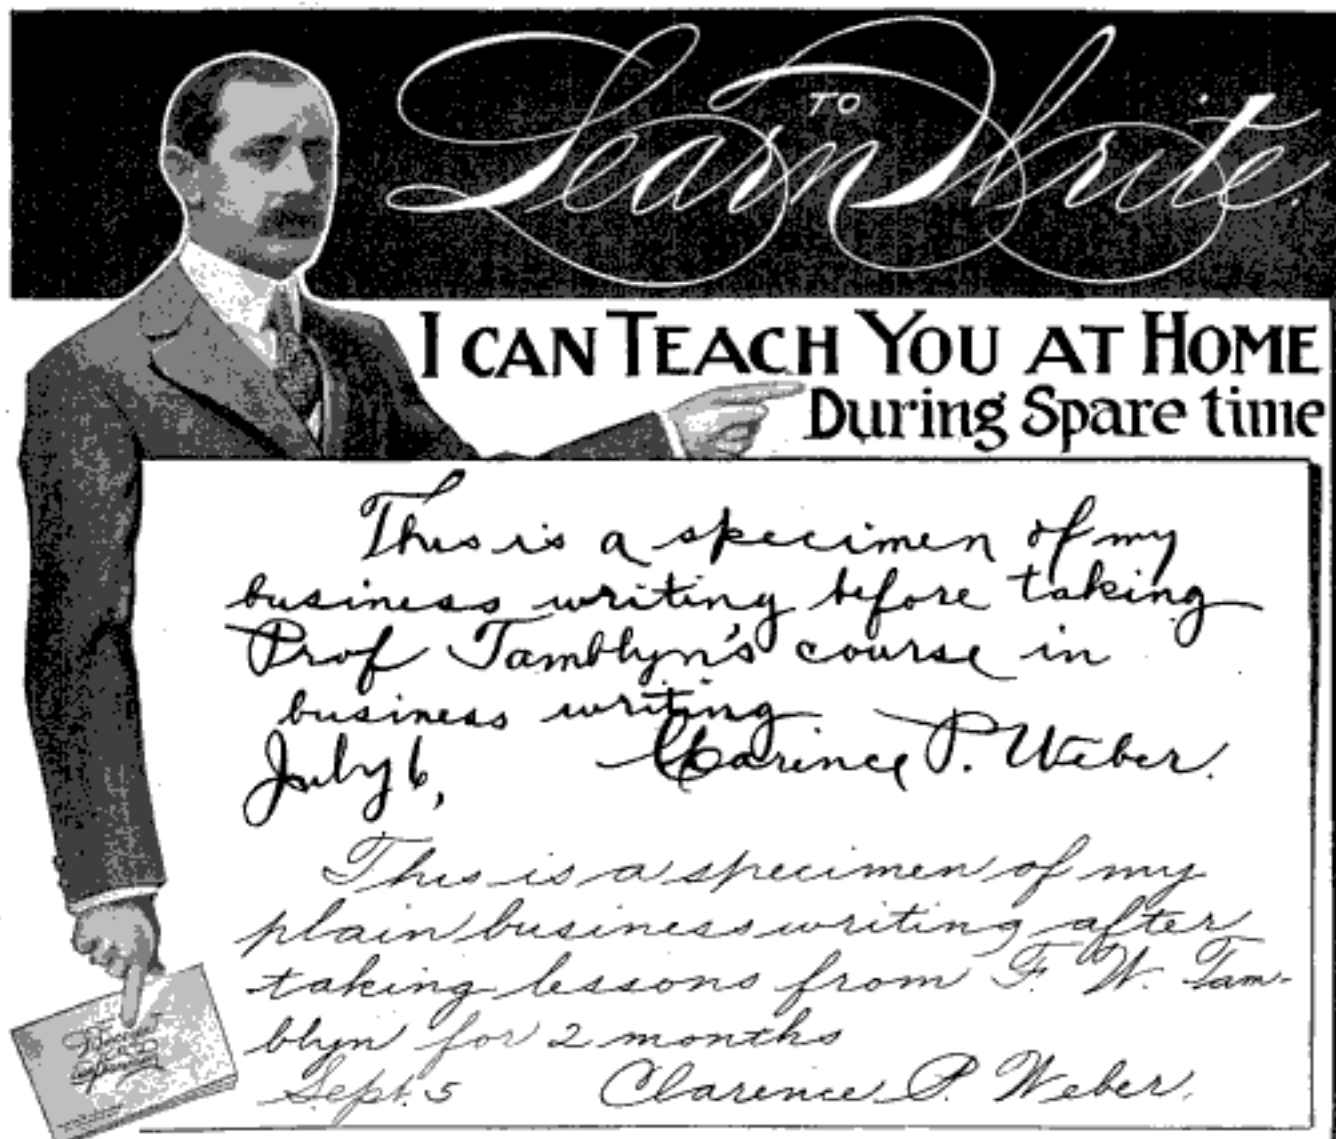 Learn TO Write.
I CAN TEACH YOU AT HOME
During Spare time
This is a specimen of my
business writing before taking
Prof Tamblyn's course in
business writing
July 6, Clarence P. Weber.
This is a specimen of my
plain business writing after
taking lessons from F. W. Tam-
blyn for 2 months
Sept. 5 Clarence P. Weber.